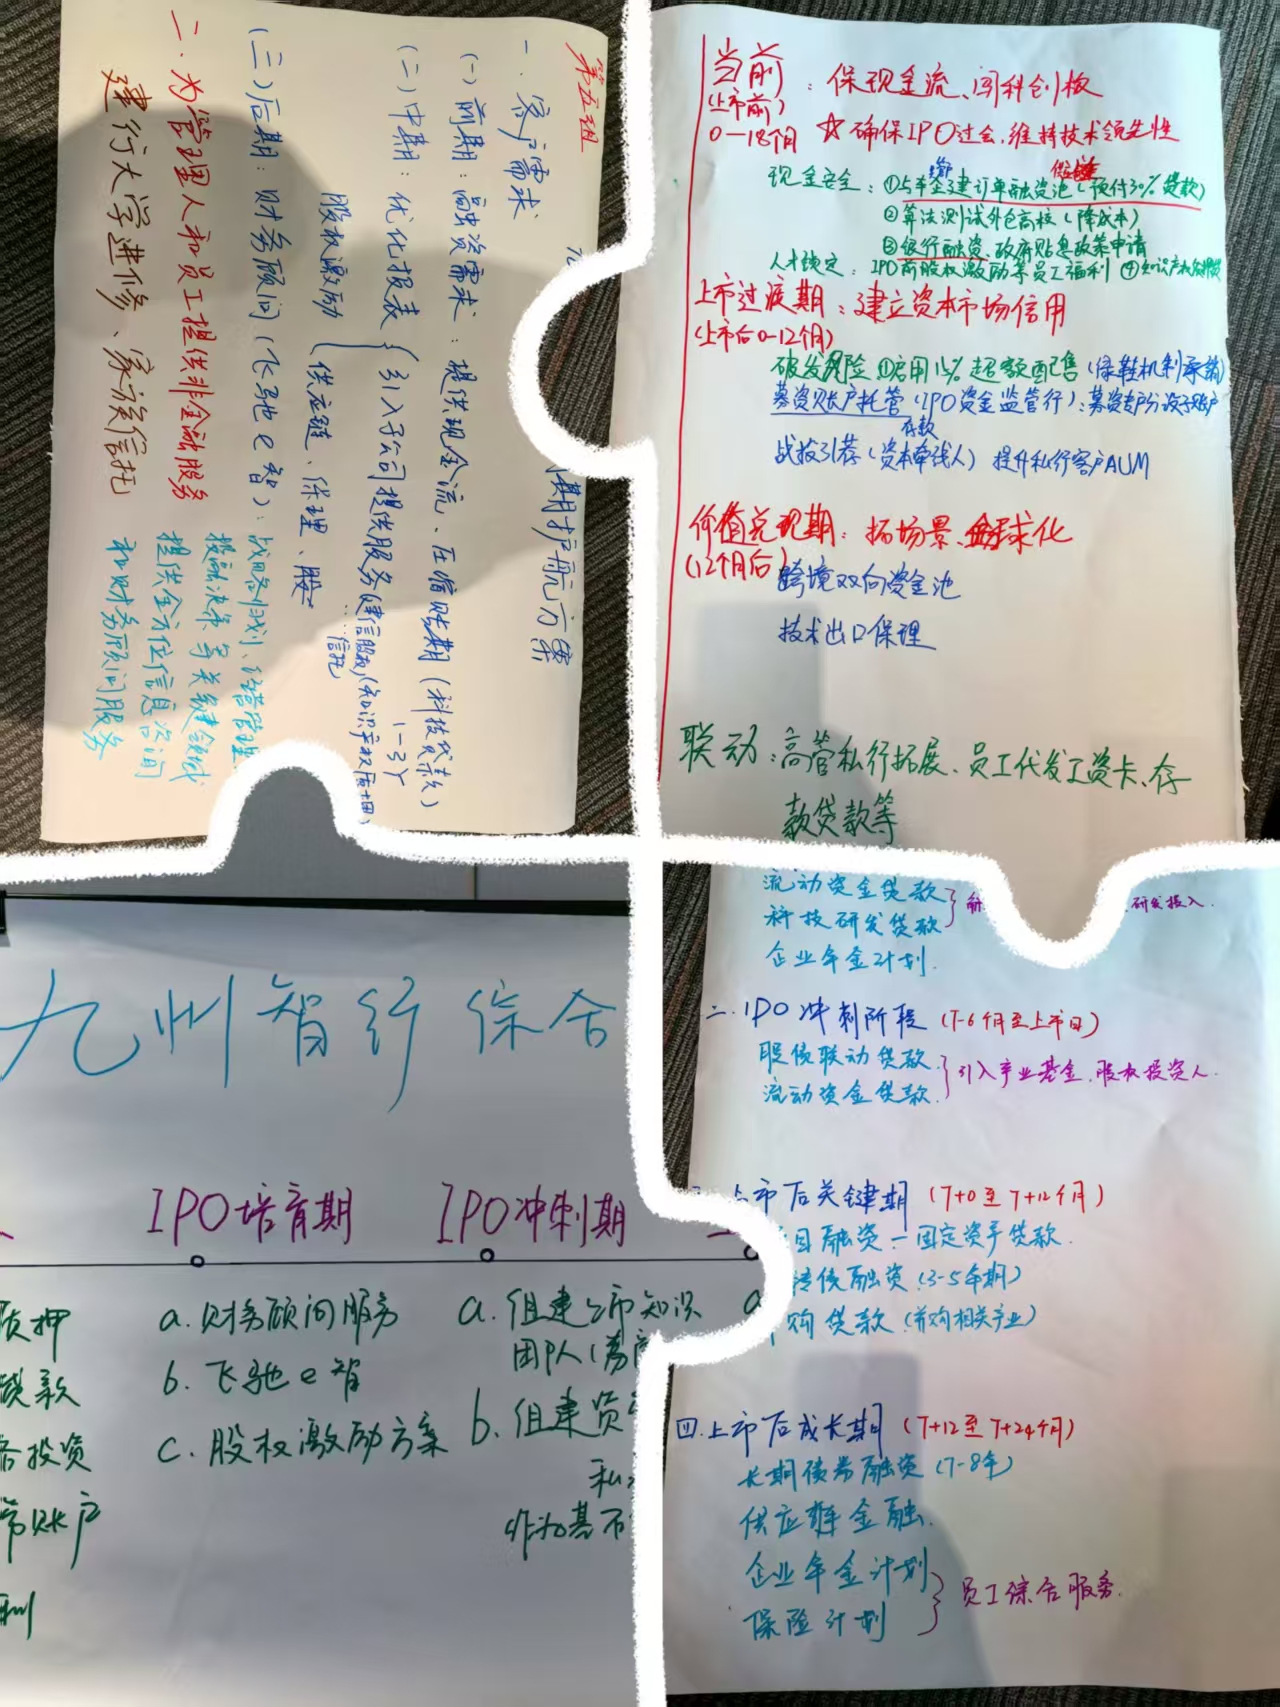 第五组
期护航方案
一、客户需求
(一)前期:融资需求:提供现金流、压缩账期(科技贷款)
1-3Y
(二)中期:优化报表{引入子公司提供服务(建信股权)(知识产权质押)
信托
股权激励{供应链、保理、股
(三)后期:财务顾问(飞驰e智):战略规划、经营管理
投融决策等关键领域
提供全方位信息咨询
和财务顾问服务
二.为管理人和员工提供非金融服务
建行大学进修、家族信托
当前:保现金流、闯科创板
(上市前)
0-18个月 ☆确保IPO过会,维持技术领先性
现金安全:①与车企建订单融资池(预付30%贷款)
②算法测试外包高校(降成本)
③银行融资、政府贴息政策申请
人才锁定:IPO前股权激励等员工福利 ④知识产权
上市过渡期:建立资本市场信用
(上市后0-12个月)
破发风险①启用15%超额配售(绿鞋机制承销)
募资账户托管(IPO资金监管行):募资专户分设子账户
存款
战投引荐(资本牵线人) 提升私行客户AUM
价值兑现期:拓场景、全球化
(12个月后)
跨境双向资金池
技术出口保理
联动:高管私行拓展、员工代发工资卡、存
款贷款等
九州智行综合
IPO培育期 IPO冲刺期
质押
a.财务顾问服务
a.组建上市知识
团队(券商
贷款
b.飞驰e智
b.组建资
投资
c.股权激励方案
账户
流动资金贷款
科技研发贷款} 研发投入.
企业年金计划.
二.IPO冲刺阶段(T-6个月至上市日)
股债联动贷款.
流动资金贷款.}引入产业基金、股权投资人.
上市后关键期(T+0至T+12个月)
目融资-固定资产贷款.
转债融资(3-5年期)
购贷款(并购相关产业)
四.上市后成长期(T+12至T+24个月)
长期债券融资(7-8年)
供应链金融.
企业年金计划
保险计划}员工综合服务.